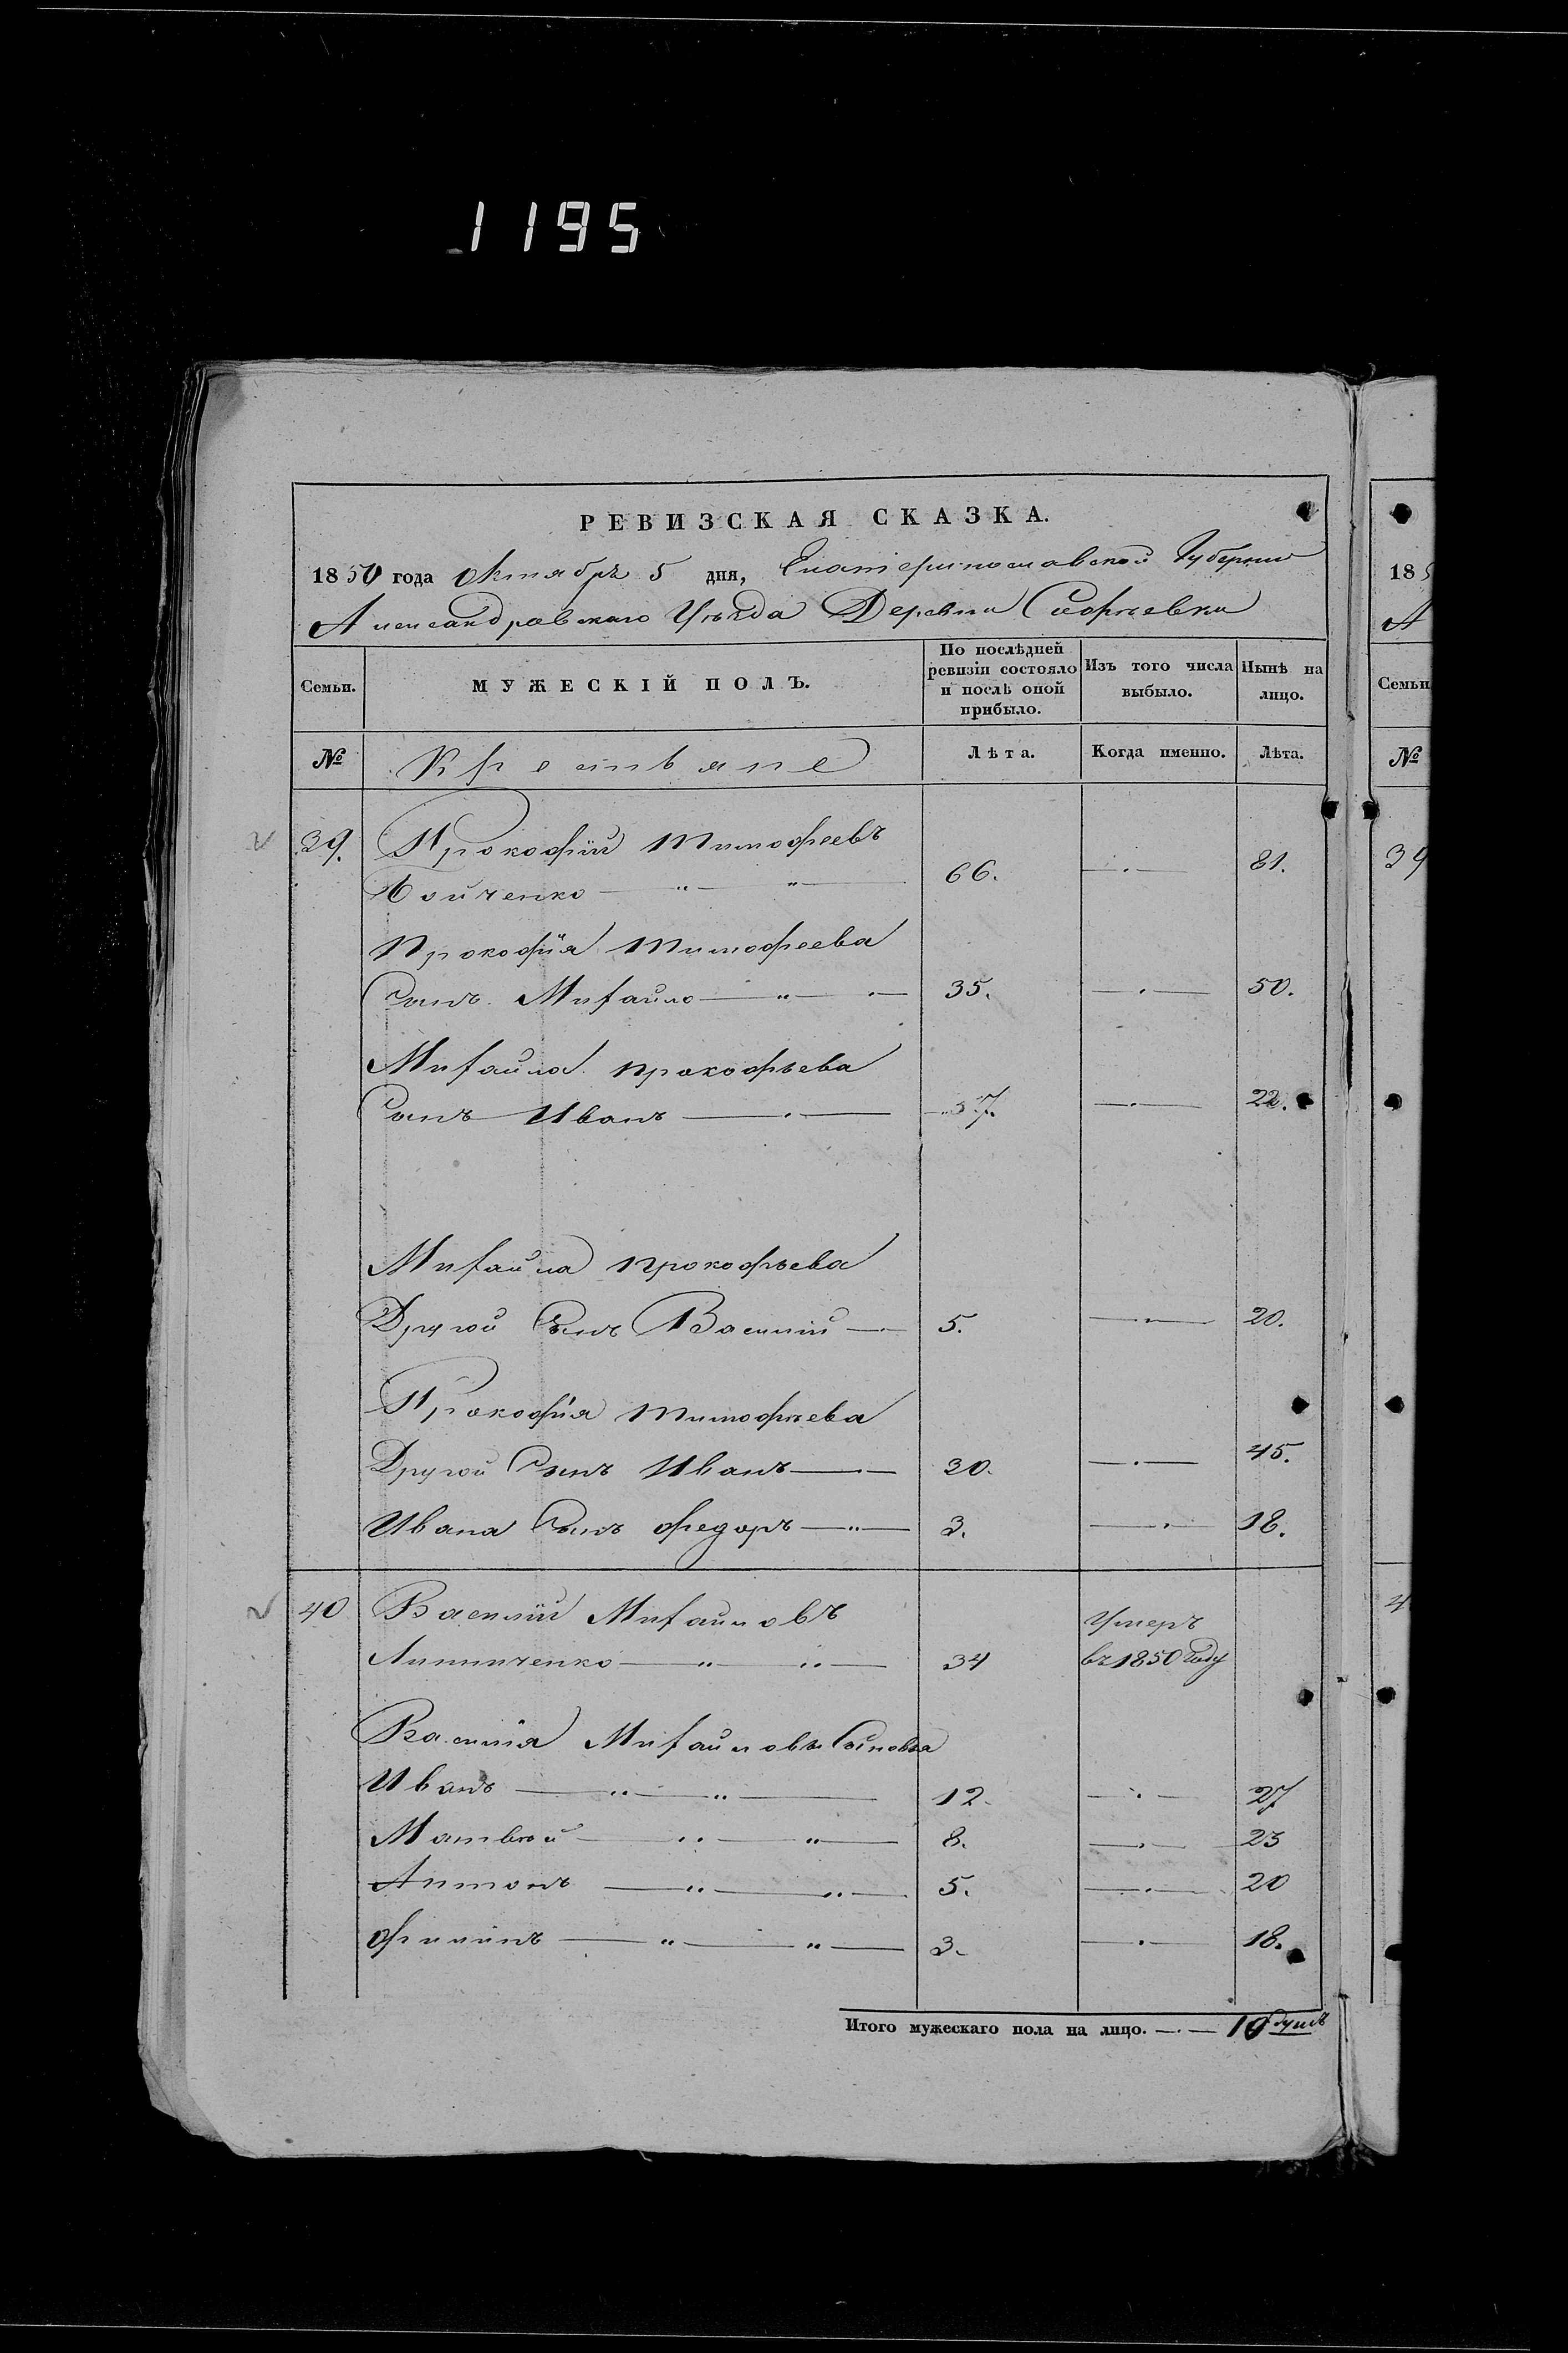 1195
РЕВИЗСКАЯ СКАЗКА.
1850 года Октября 5 дня, Екатеринославской Губернии
Александровскаго Уѣзда Деревни
Семьи.
МУЖЕСКІЙ ПОЛЪ.
По послѣдней ревизіи состояло и послѣ оной прибыло.
Изъ того числа выбыло.
Нынѣ на лицо.
№ Крестьяне Лѣта. Когда именно. Лѣта.
39. Прокофій Тимофеевъ
Бойченко 66. 81.
Прокофія Тимофеева
Сынъ Михайло 35. 50.
Михайла Прокофьева
Сынъ Иванъ 7. 22.
Михайла Прокофьева
Другой Сынъ Василій 5. 20.
Прокофія Тимофѣева
Другой Сынъ Иванъ 30. 45.
Ивана Сынъ Федоръ 3. 18.
40 Василій Михайловъ Умеръ
34 въ 1850 Году
Василія Михайловы Сыновья
Иванъ 12. 27
Матвѣй 8. 23
Антонъ 5. 20
Филипъ 3. 18.
Итого мужескаго пола на лицо. 10 душъ
185
А
Семьи
№
39
4